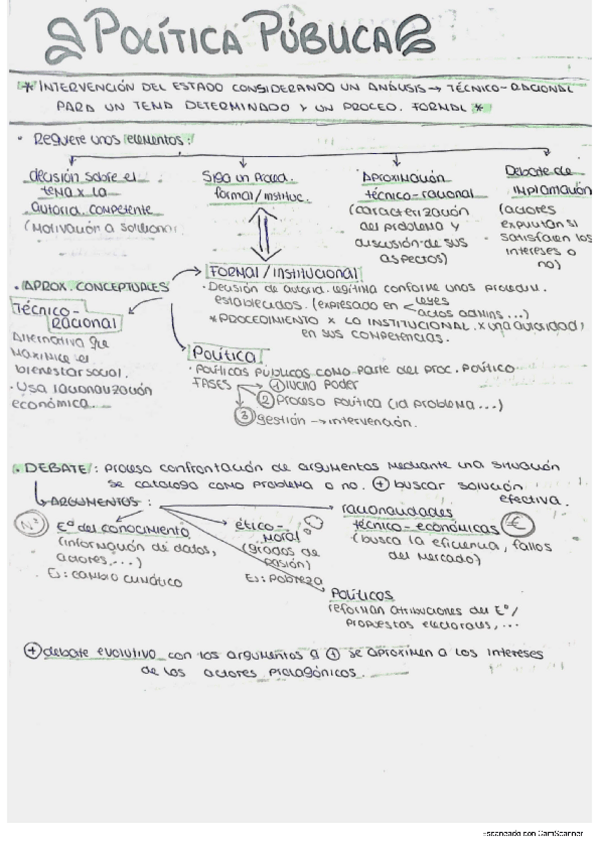 POLÍTICA PÚBLICA
* INTERVENCIÓN DEL ESTADO CONSIDERANDO UN ANÁLISIS → TÉCNICO-RACIONAL
PARA UN TEMA DETERMINADO Y UN PROCED. FORMAL *
• Requiere unos elementos:
decisión sobre el
tema x la
autoria. competente
(Motivación a solucionar
Siga un proced.
formal/instituc.
Aproximación
técnico-racional
(caracterización
del problema y
discusión de sus
aspectos)
Debate de
implantación
(actores
expultan si
satisfacen los
intereses o
no)
• APROX. CONCEPTUALES
Técnico-
Racional
Alternativa que
maximice el
bienestar social.
• Usa racionalización
económica.
Formal/institucional
• Decisión de autorid. legítima conforme unos procedim.
establecidos. (expresado en < leyes
actos admins...)
* PROCEDIMIENTO X LO INSTITUCIONAL. X una autoridad,
en sus competencias.
Política
• Políticas públicas como parte del proc. político
FASES → ① lucha poder
② Proceso política (id problema...)
③ gestión → intervención.
• DEBATE: proceso confrontación de argumentos mediante una situación
se cataloga como problema o no. ⊕ buscar solución
efectiva.
ARGUMENTOS:
Nº
Eº del conocimiento
(información de datos,
actores,...)
Ej: cambio climático
ético-
moral
(grados de
pasión)
Ej: pobreza
racionalidades
técnico-económicas €
(busca la eficiencia, fallos
del mercado)
Políticos
reforman atribuciones del Eº/
propuestas electorales,...
⊕ debate evolutivo con los argumentos a ① se aproximen a los intereses
de los actores protagónicos.
Escaneado con CamScanner